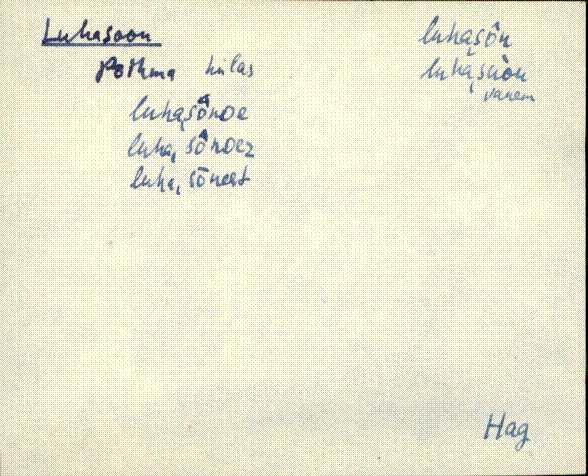 Luhasoon
Pothma külas
luha,sô̬noe
luha, sô̬noez
luha, sōneest
luha,sôn
luha,sùon
vanem
Hag